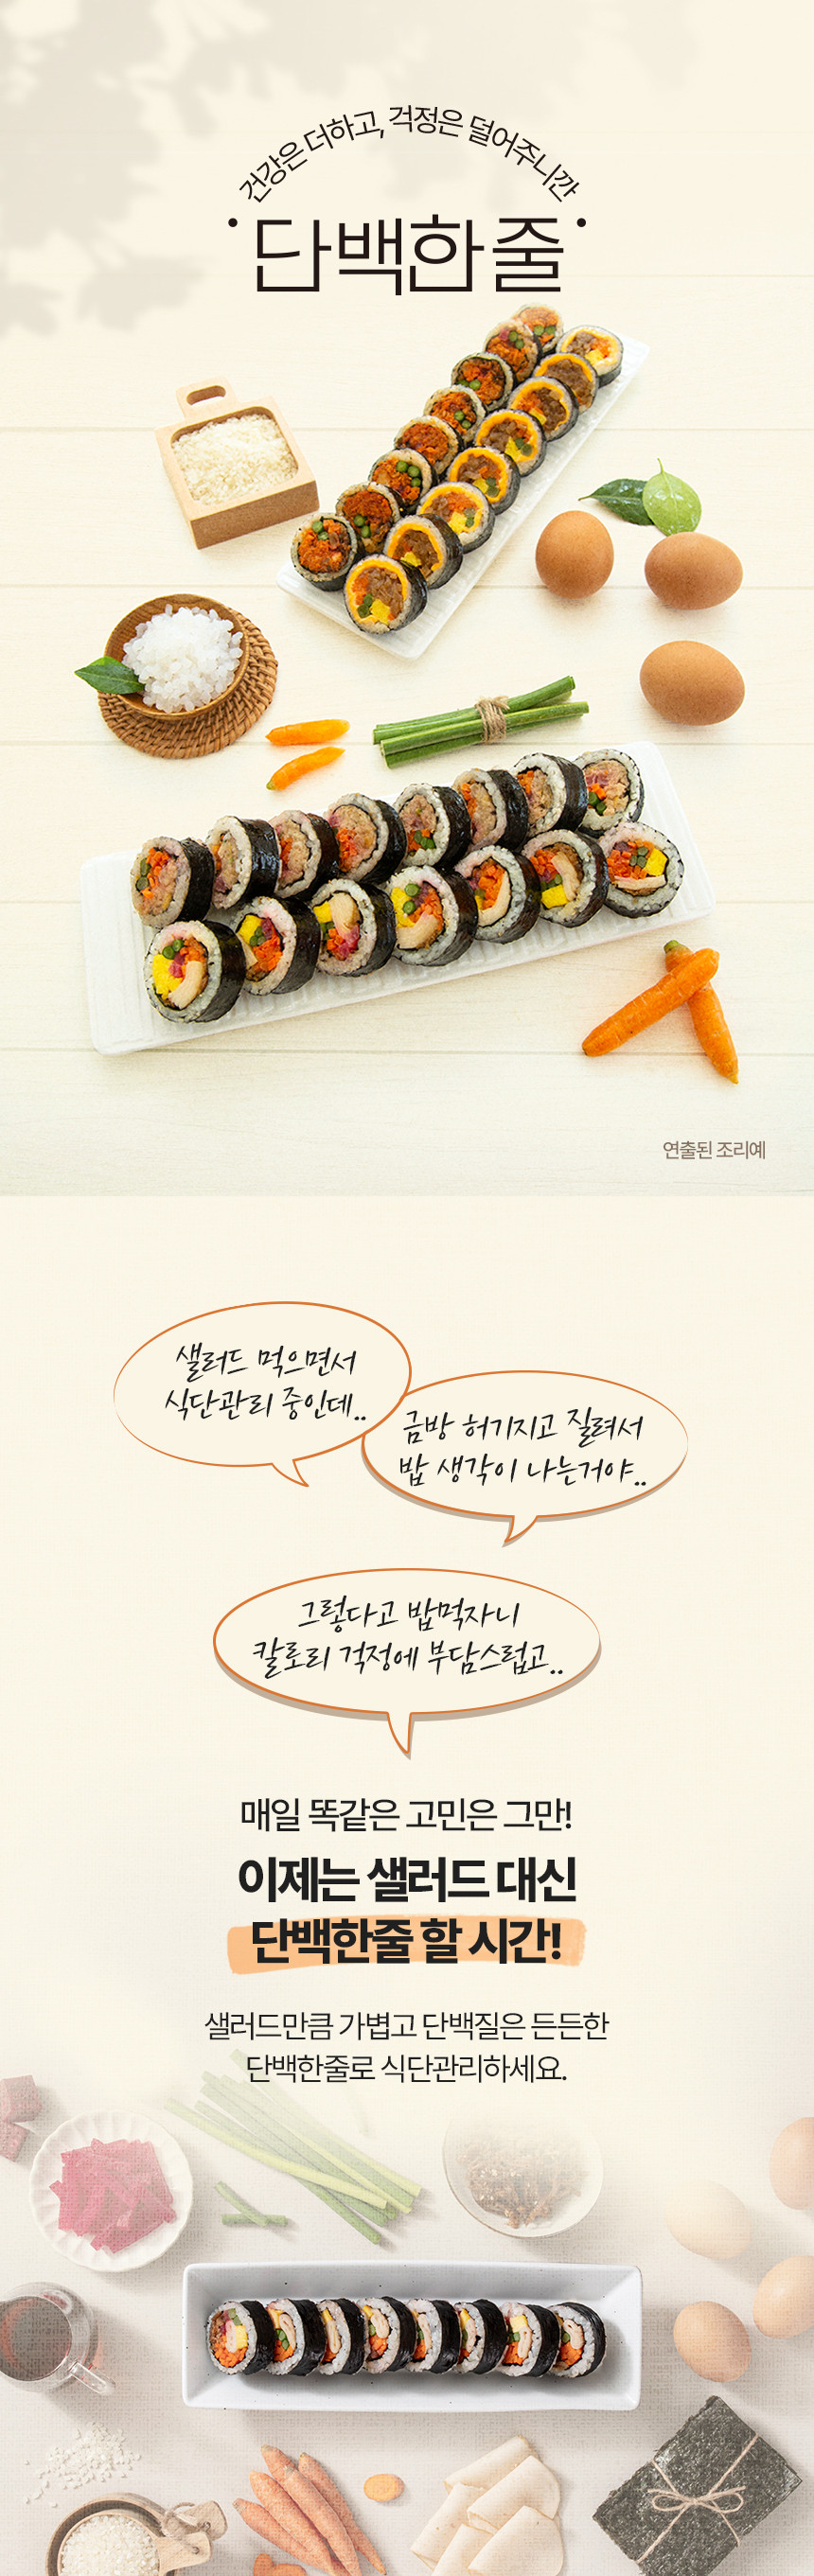 건강은 더하고, 걱정은 덜어주니깐
단백한줄
연출된 조리예
샐러드 먹으면서
식단관리 중인데..
금방 허기지고 질려서
밥 생각이 나는거야..
그렇다고 밥먹자니
칼로리 걱정에 부담스럽고..
매일 똑같은 고민은 그만!
이제는 샐러드 대신
단백한줄 할 시간!
샐러드만큼 가볍고 단백질은 든든한
단백한줄로 식단관리하세요.